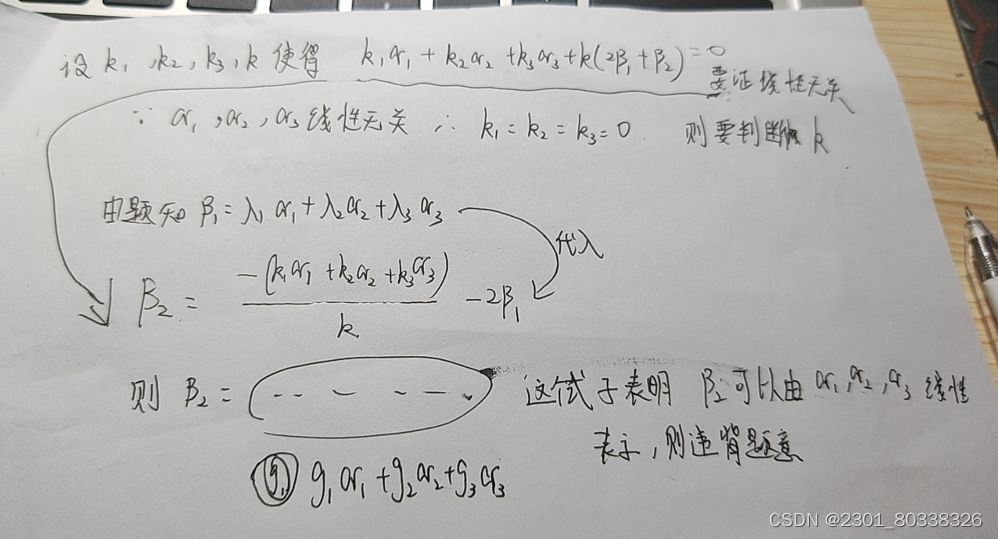 设 k₁,k₂,k₃,k 使得 k₁α₁+k₂α₂+k₃α₃+k(2β₁+β₂)=0
要证线性无关
∵ α₁,α₂,α₃线性无关 ∴ k₁=k₂=k₃=0 则要判断 k
由题知 β₁=λ₁α₁+λ₂α₂+λ₃α₃
代入
β₂= -(k₁α₁+k₂α₂+k₃α₃)/k -2β₁
则 β₂= 这个式子表明 β₂可以由α₁,α₂,α₃线性
表示,则违背题意
g₁α₁+g₂α₂+g₃α₃
CSDN @2301_80338326